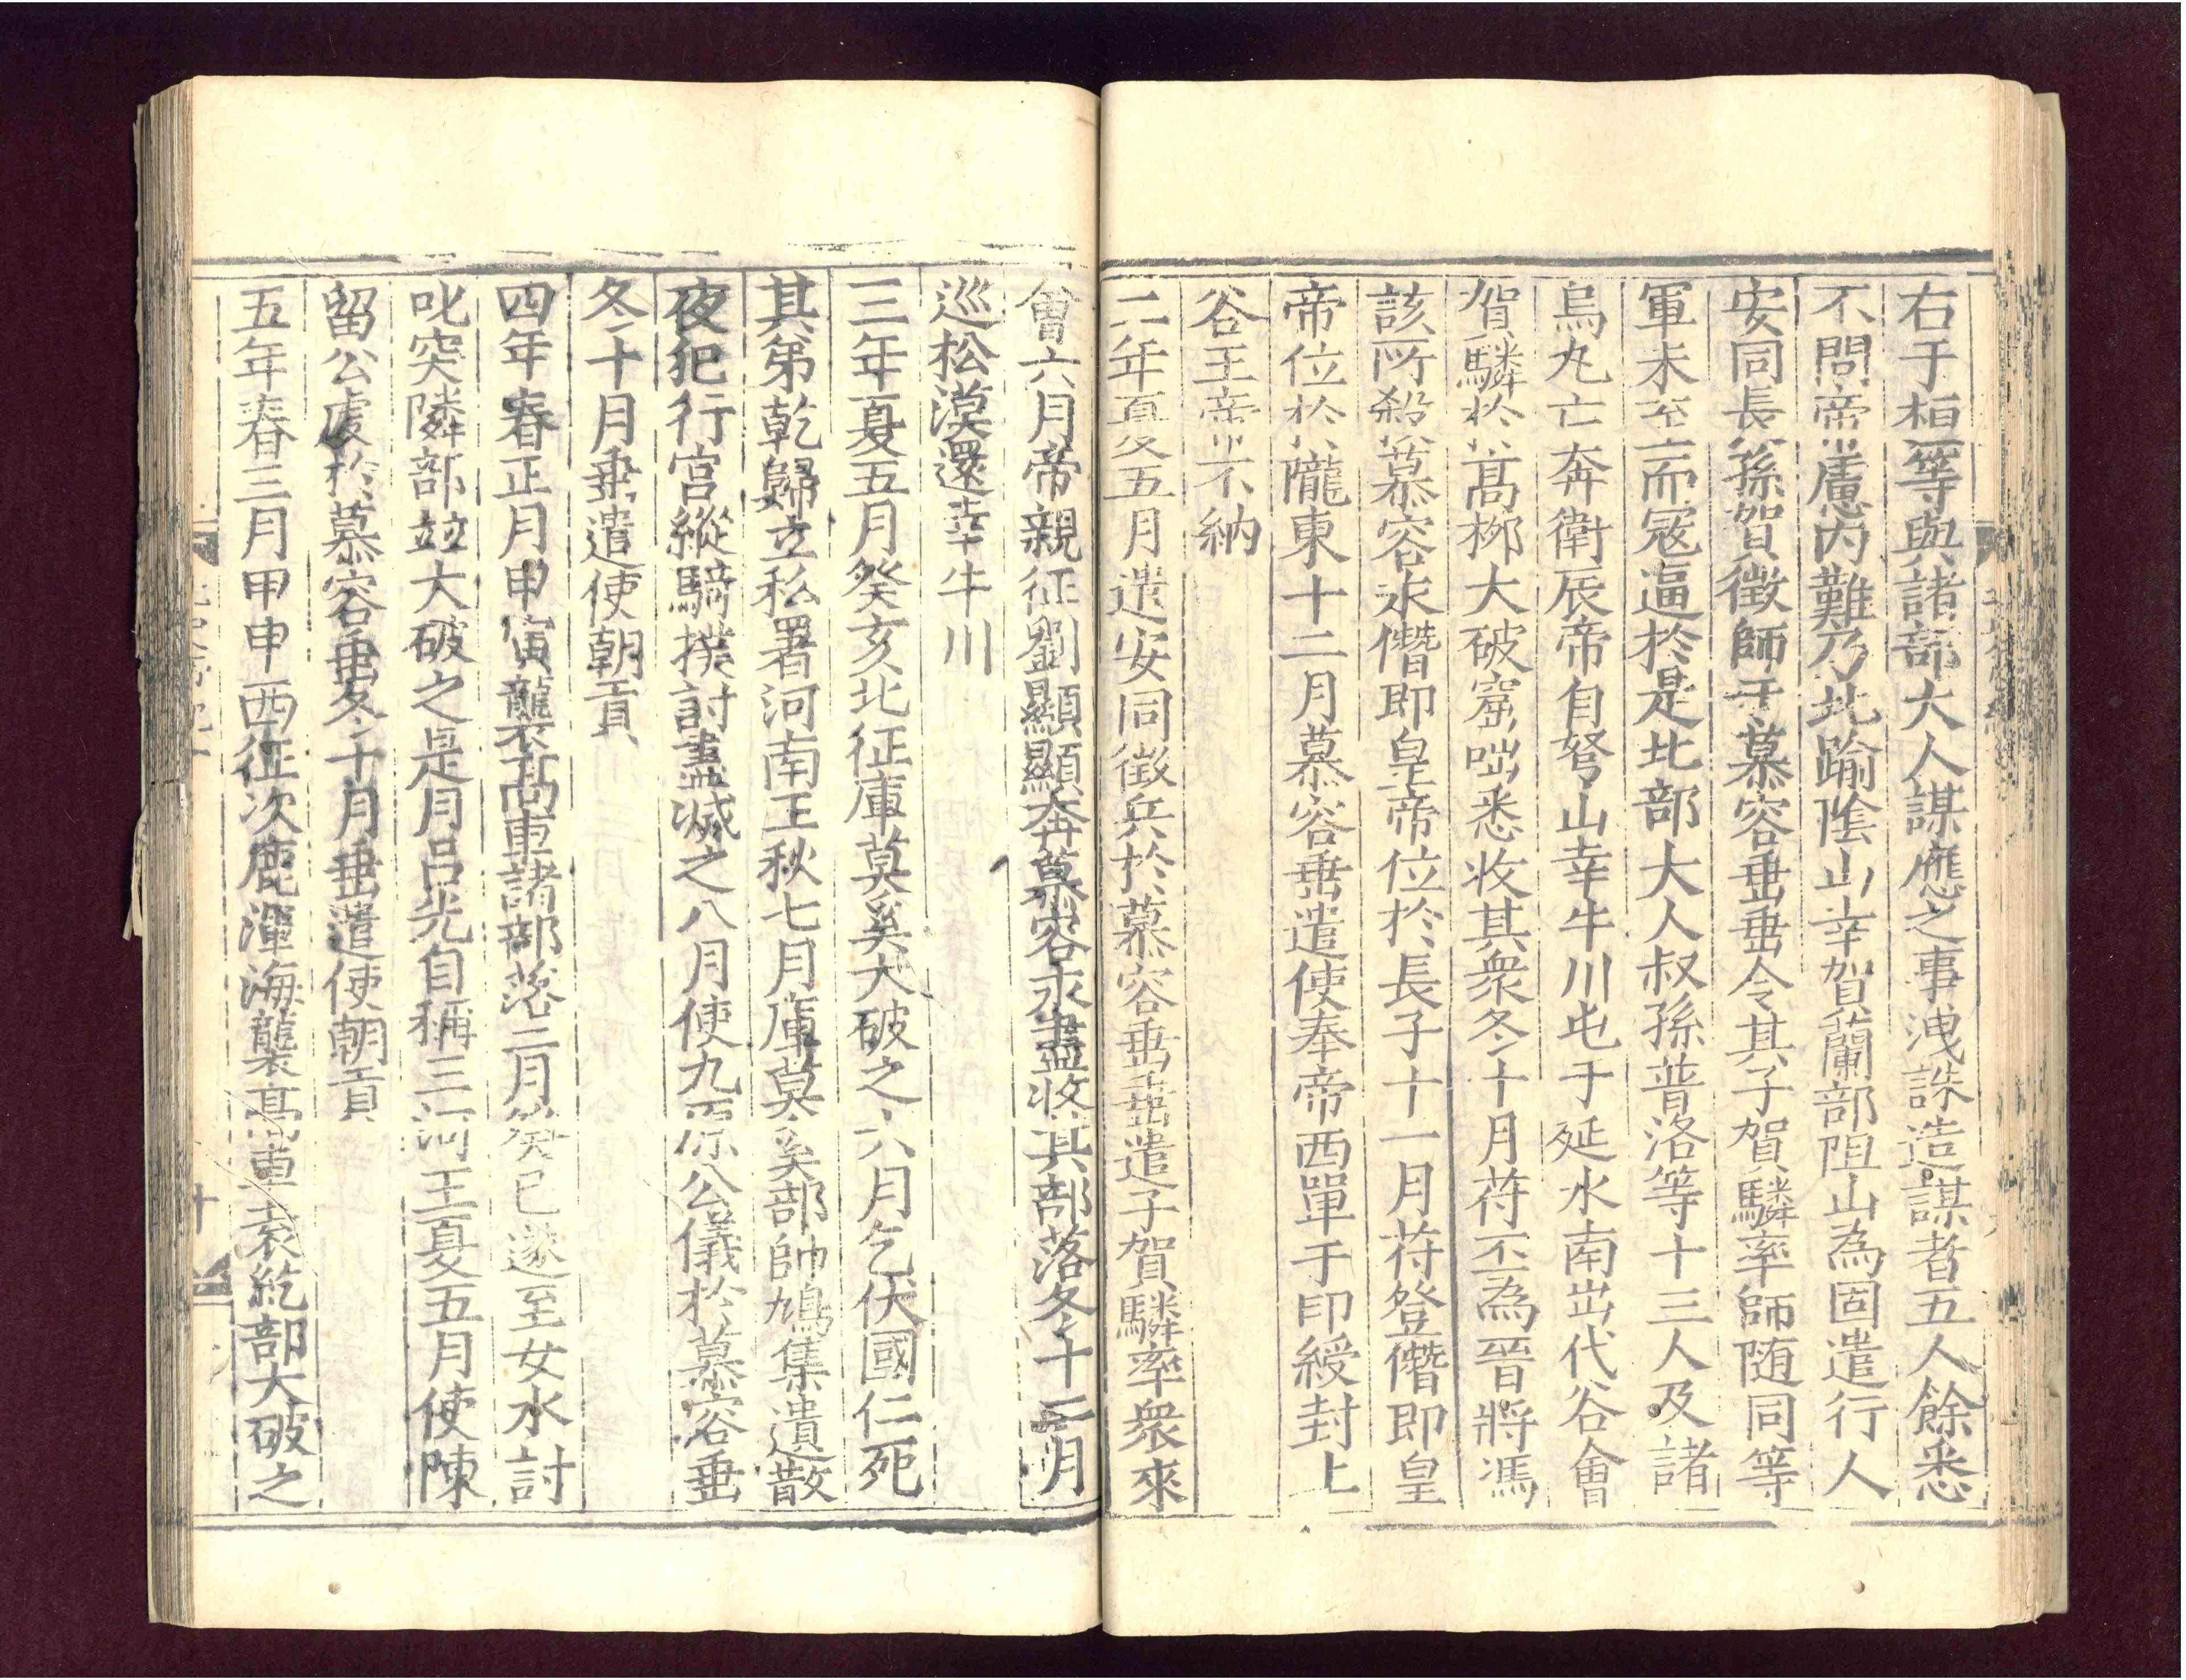 右于桓等與諸部大人謀應之事洩誅造謀者五人餘悉
不問帝慮内難乃北踰陰山幸賀蘭部阻山為固遣行人
安同長孫賀徵師于慕容垂垂令其子賀驎率師随同等
軍未至而宼逼於是北部大人叔孫普洛等十三人及諸
烏丸亡奔衛辰帝自弩山幸牛川屯于延水南出代谷會
賀驎於髙柳大破窟咄悉收其衆冬十月苻丕為晉將馮
該所殺慕容永僭即皇帝位於長子十一月苻登僭即皇
帝位於隴東十二月慕容垂遣使奉帝西單于印綬封上
谷王帝不納
二年夏五月遣安同徵兵於慕容垂垂遣子賀驎率衆來
會六月帝親征劉顯顯奔慕容永盡收其部落冬十二月
巡松漠還幸牛川
三年夏五月癸亥北征庫莫奚大破之六月乞伏國仁死
其弟乾歸立私署河南王秋七月庫莫奚部帥鳩集遺散
夜犯行宫縱騎撲討盡滅之八月使九原公儀於慕容垂
冬十月垂遣使朝貢
四年春正月甲寅襲髙車諸部落二月癸巳遂至女水討
叱突隣部並大破之是月吕光自稱三河王夏五月使陳
留公虔於慕容垂冬十月垂遣使朝貢
五年春三月甲申西征次鹿渾海襲髙車袁紇部大破之